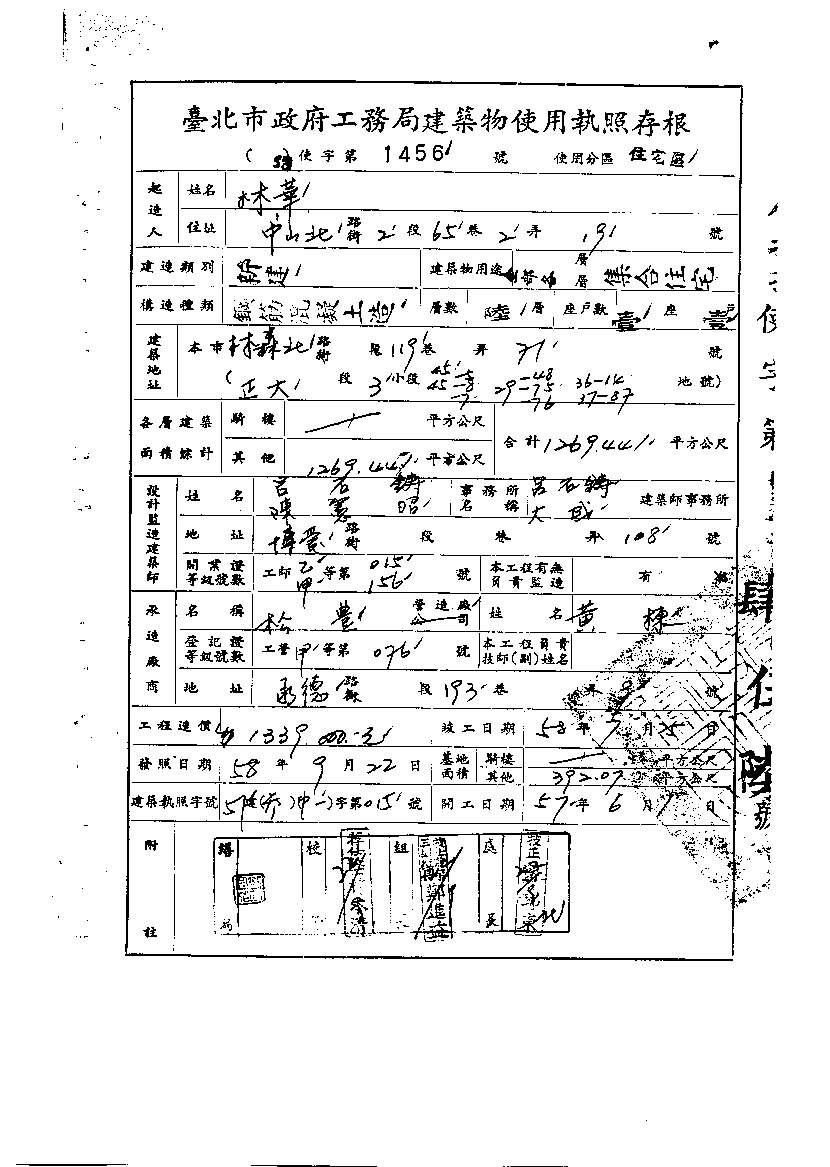 臺北市政府工務局建築物使用執照存根
( 58 ) 使字第 1456 號 使用分區 住宅區
起造人 姓名 林華
住址 中山北 路街 2 段 65 巷 2 弄 19 號
建造類別 新建 建築物用途 層層 集合住宅
構造種類 鋼筋混凝土造 層數 陸 層 座戶數 壹 座 壹 戶
建築地址 本市 林森北 路街 段 119 巷 弄 71 號
( 正大 段 3 小段 45-8 29-48 75 76 36-14 37-87 地號 )
各層建築面積總計 騎樓 平方公尺 合計 1269.44 平方公尺
其他 1269.44 平方公尺
設計監造建築師 姓名 呂石鑄 陳憲昭 事務所名稱 呂石鑄 大 建築師事務所
地址 博愛 路街 段 巷 弄 108 號
開業證等級號數 工師 乙 甲 等第 015 156 號 本工程有無負責監造 有 無
承造廠商 名稱 松豊 營造廠公司 姓名 黃棟
登記證等級號數 工營 甲 等第 076 號 本工程負責技師(副)姓名
地址 承德 路街 段 193 巷 弄 號
工程造價 1339000.-元 竣工日期 58 年 7 月 25 日
發照日期 58 年 9 月 22 日 基地面積 騎樓 平方公尺
其他 392.07 平方公尺
建築執照字號 57 建( )中一 字第 015 號 開工日期 57 年 6 月 日
附註 繕 校 組 長
使字第
肆 伍 陸 號